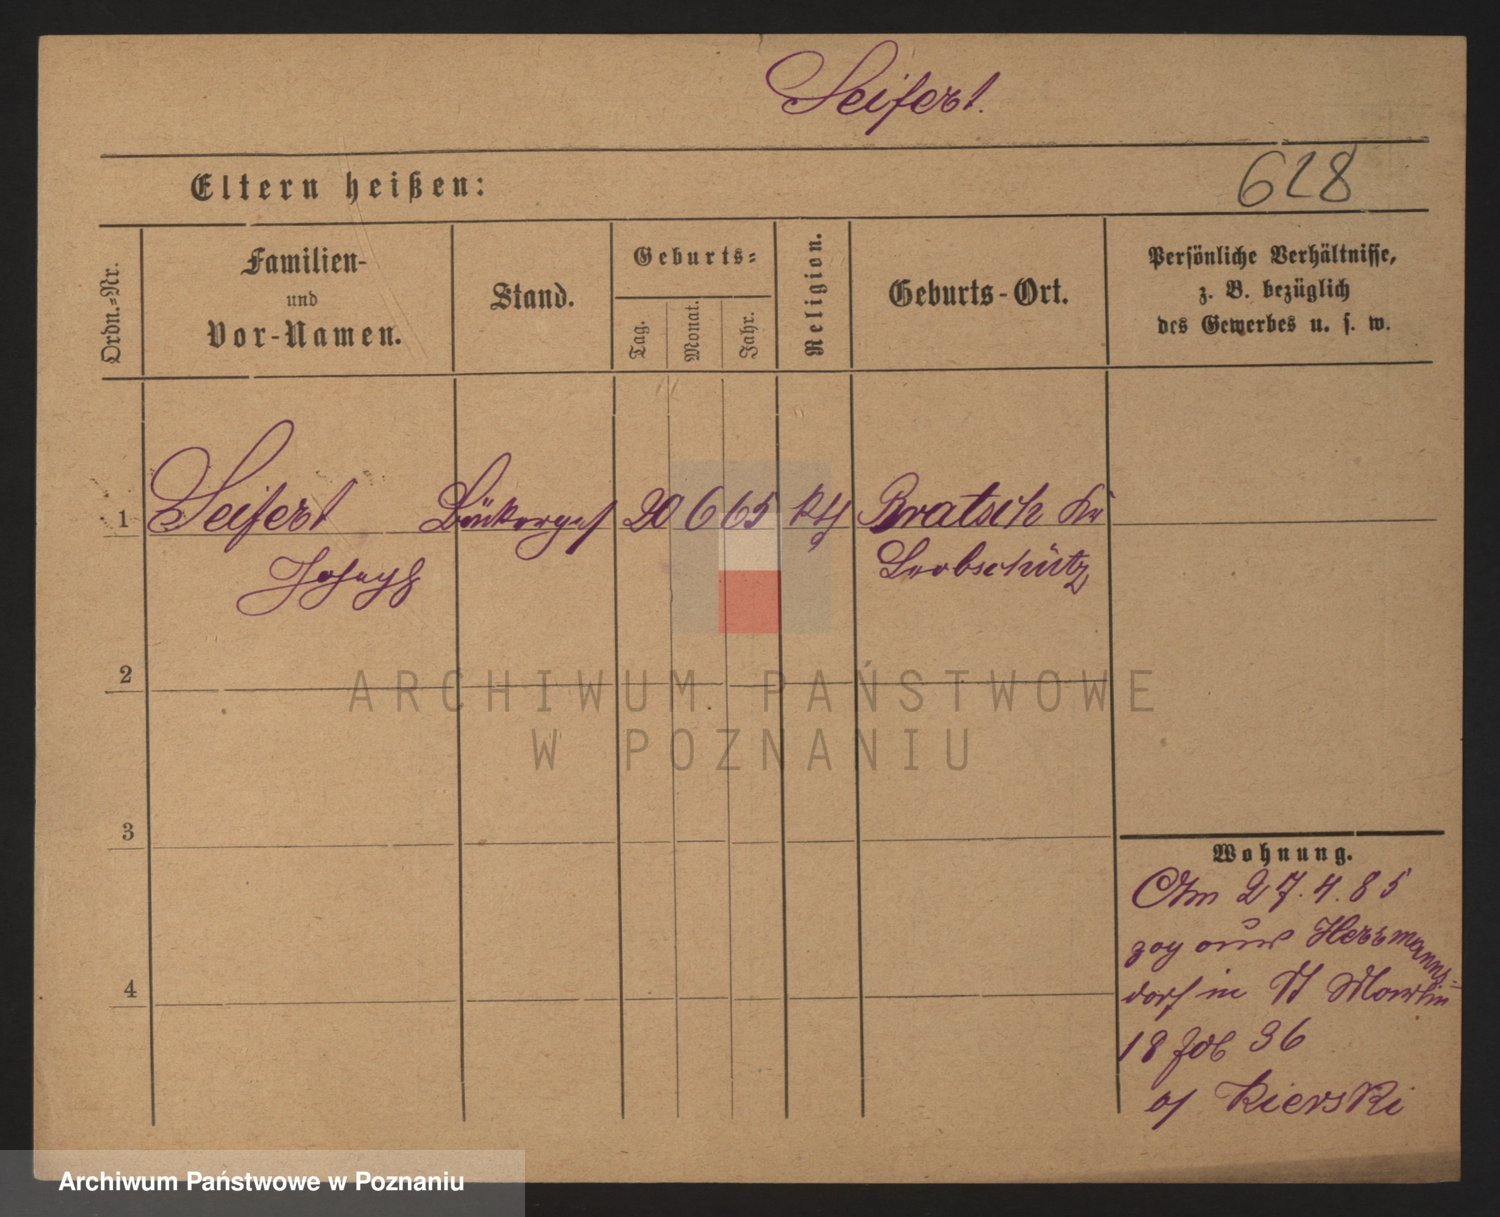 Seifert.
Eltern heißen:
628
Ordn.=Nr.
Familien-
und
Vor-Namen.
Stand.
Geburts=
Tag.
Monat.
Jahr.
Religion.
Geburts-Ort.
Persönliche Verhältnisse,
z. B. bezüglich
des Gewerbes u. s. w.
1
Seifert
Joseph
Bäckerges
20
6
65
kth
Bratsch Kr
Leobschütz
2
ARCHIWUM PAŃSTWOWE
W POZNANIU
3
4
Wohnung.
Am 27.4.85
zog aus Herrmanns=
dorf in St Martin
18 zob 36
Kierski
Archiwum Państwowe w Poznaniu